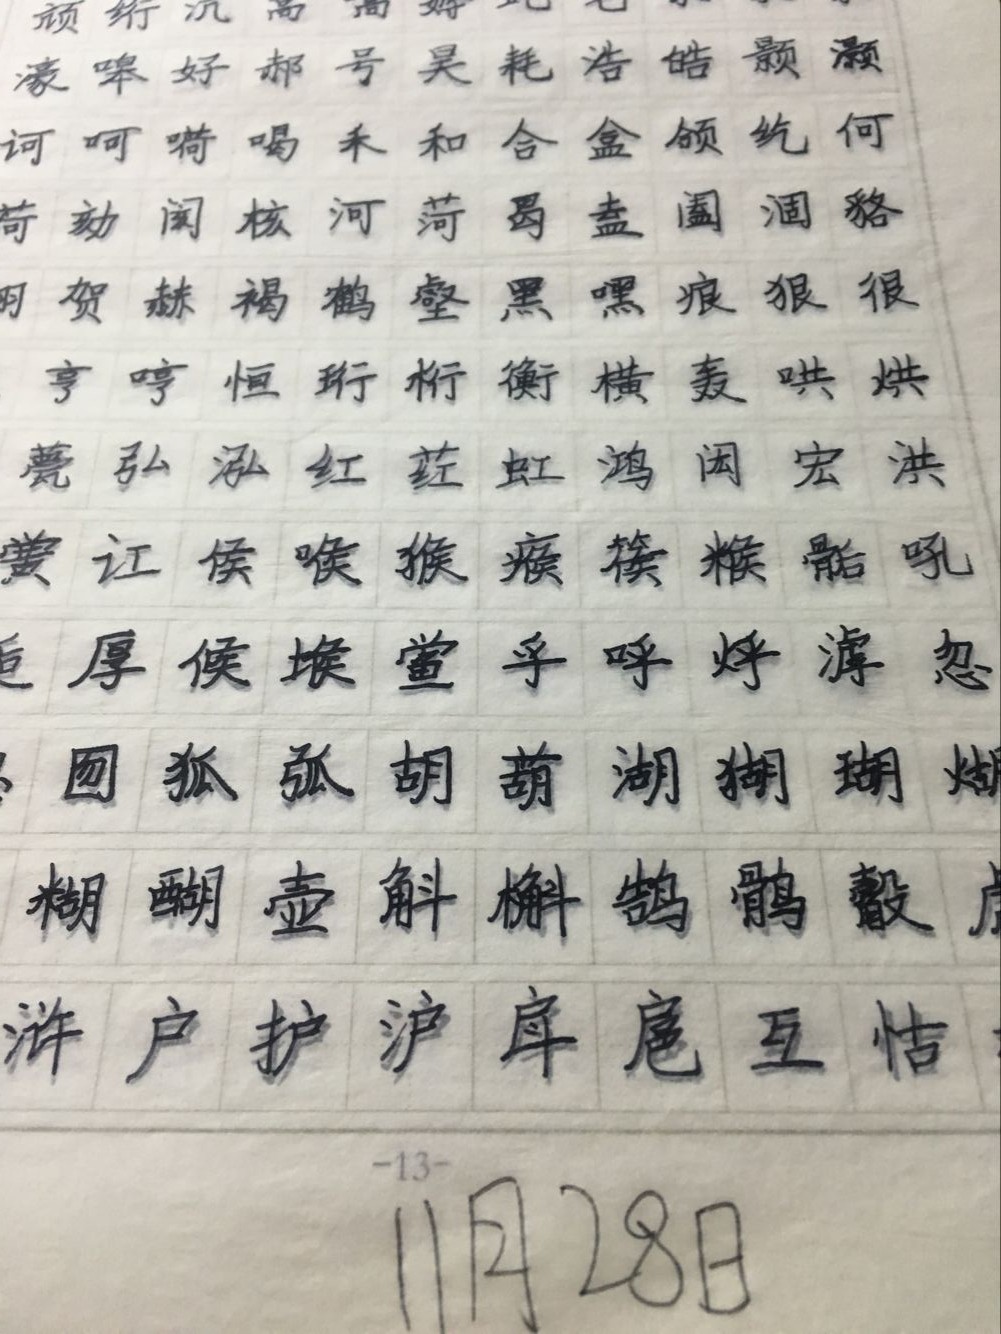 颃 绗 沆 蒿
濠 嗥 好 郝 号 昊 耗 浩 皓 颢 灏
诃 呵 嗬 喝 禾 和 合 盒 颌 纥 何
荷 劾 阂 核 河 菏 曷 盍 阖 涸 貉
翮 贺 赫 褐 鹤 壑 黑 嘿 痕 狠 很
亨 哼 恒 珩 桁 衡 横 轰 哄 烘
薨 弘 泓 红 荭 虹 鸿 闳 宏 洪
黉 讧 侯 喉 猴 瘊 篌 糇 骺 吼
逅 厚 候 堠 鲎 乎 呼 烀 滹 忽
囫 狐 弧 胡 葫 湖 猢 瑚 煳
糊 醐 壶 斛 槲 鹄 鹘 觳 虎
浒 户 护 沪 戽 扈 互 怙
-13-
11月28日